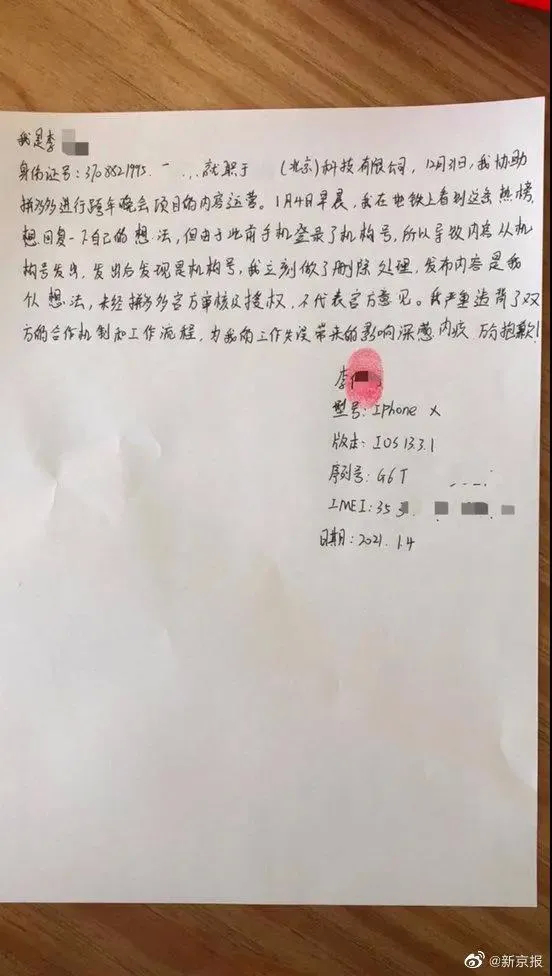 我是李
身份证号：370882199５. 就职于 （北京）科技有限公司，12月31日，我协助
拼多多进行跨年晚会项目的内容运营。1月4日早晨，我在地铁上看到这条热榜，
想回复一下自己的想法，但由于此前手机登录了机构号，所以导致内容从机
构号发出，发出后发现是机构号，我立刻做了删除处理，发布内容是我
个人想法，未经拼多多官方审核及授权，不代表官方意见。我严重违背了双
方的合作机制和工作流程，为我的工作失误带来的影响深感内疚 万分抱歉！
李
型号：IPhone X
版本：IOS 13.3.1
序列号：G6T
IMEI：35
日期：2021.1.4
@新京报